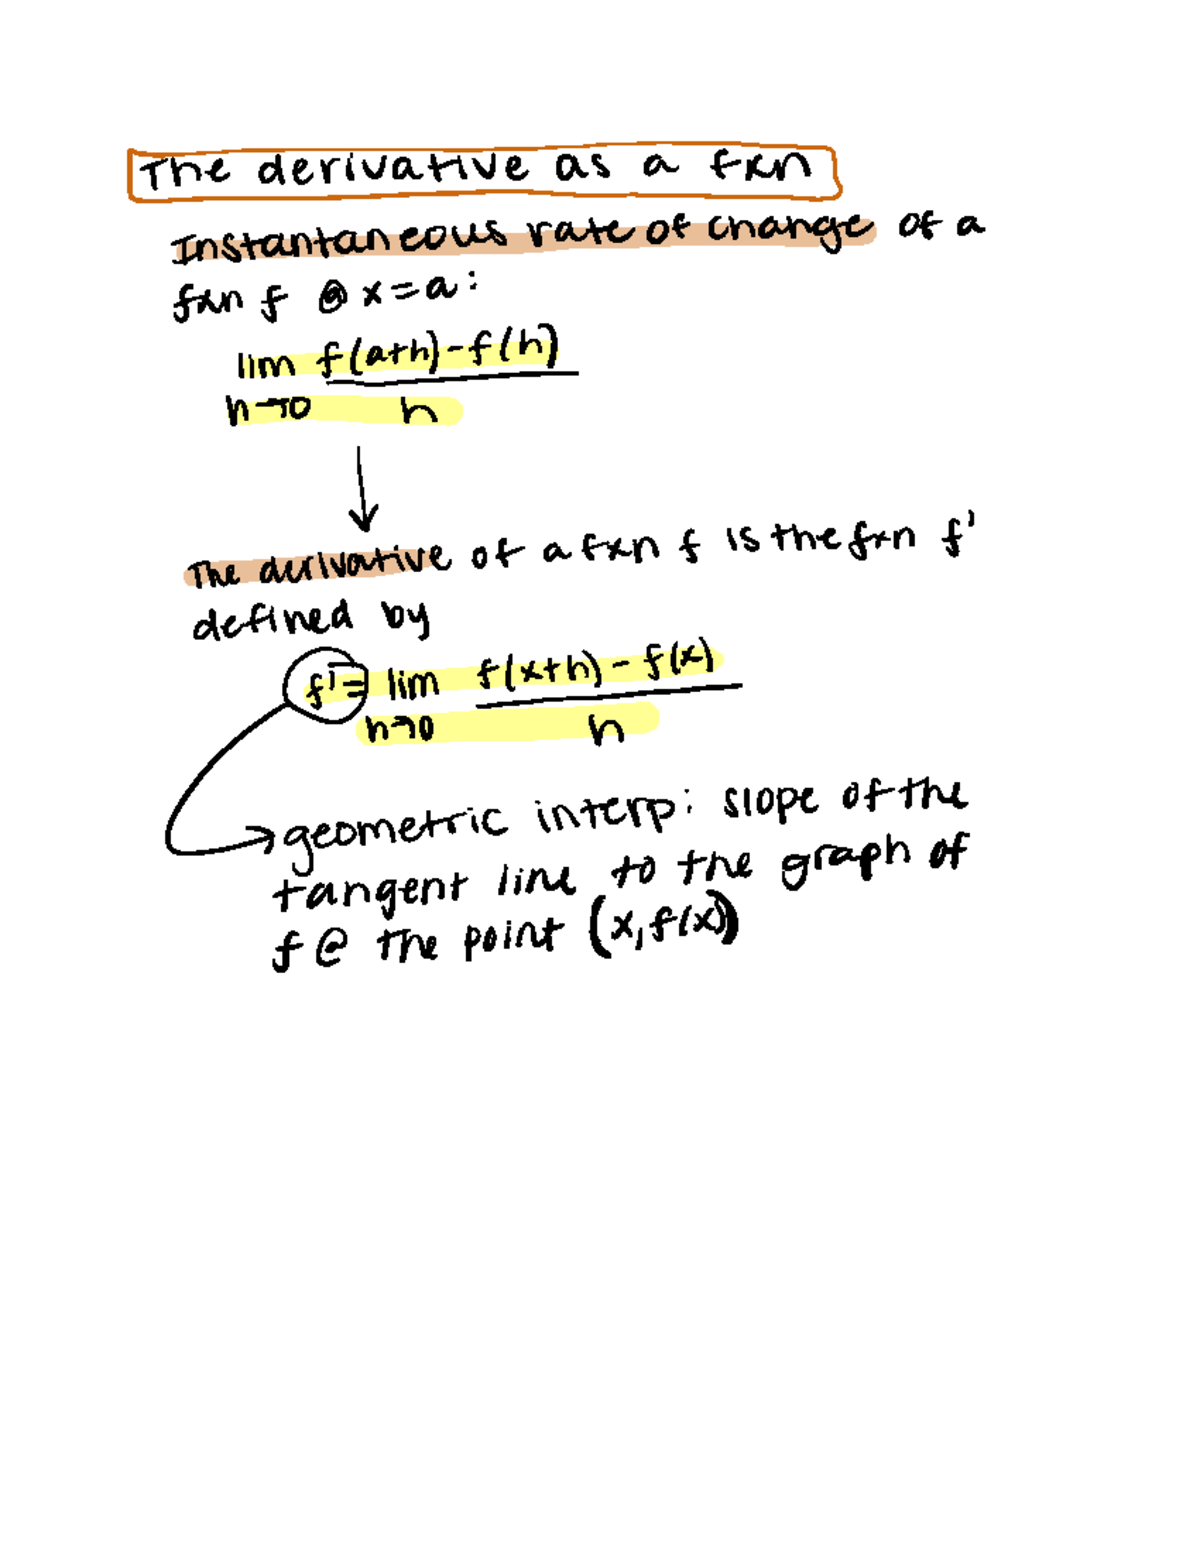 The derivative as a fxn
Instantaneous rate of change of a
fxn f @ x=a:
lim f(a+h)-f(h)
h→0 h
The derivative of a fxn f is the fxn f'
defined by
f'= lim f(x+h) - f(x)
h→0 h
geometric interp: slope of the
tangent line to the graph of
f @ the point (x, f(x))